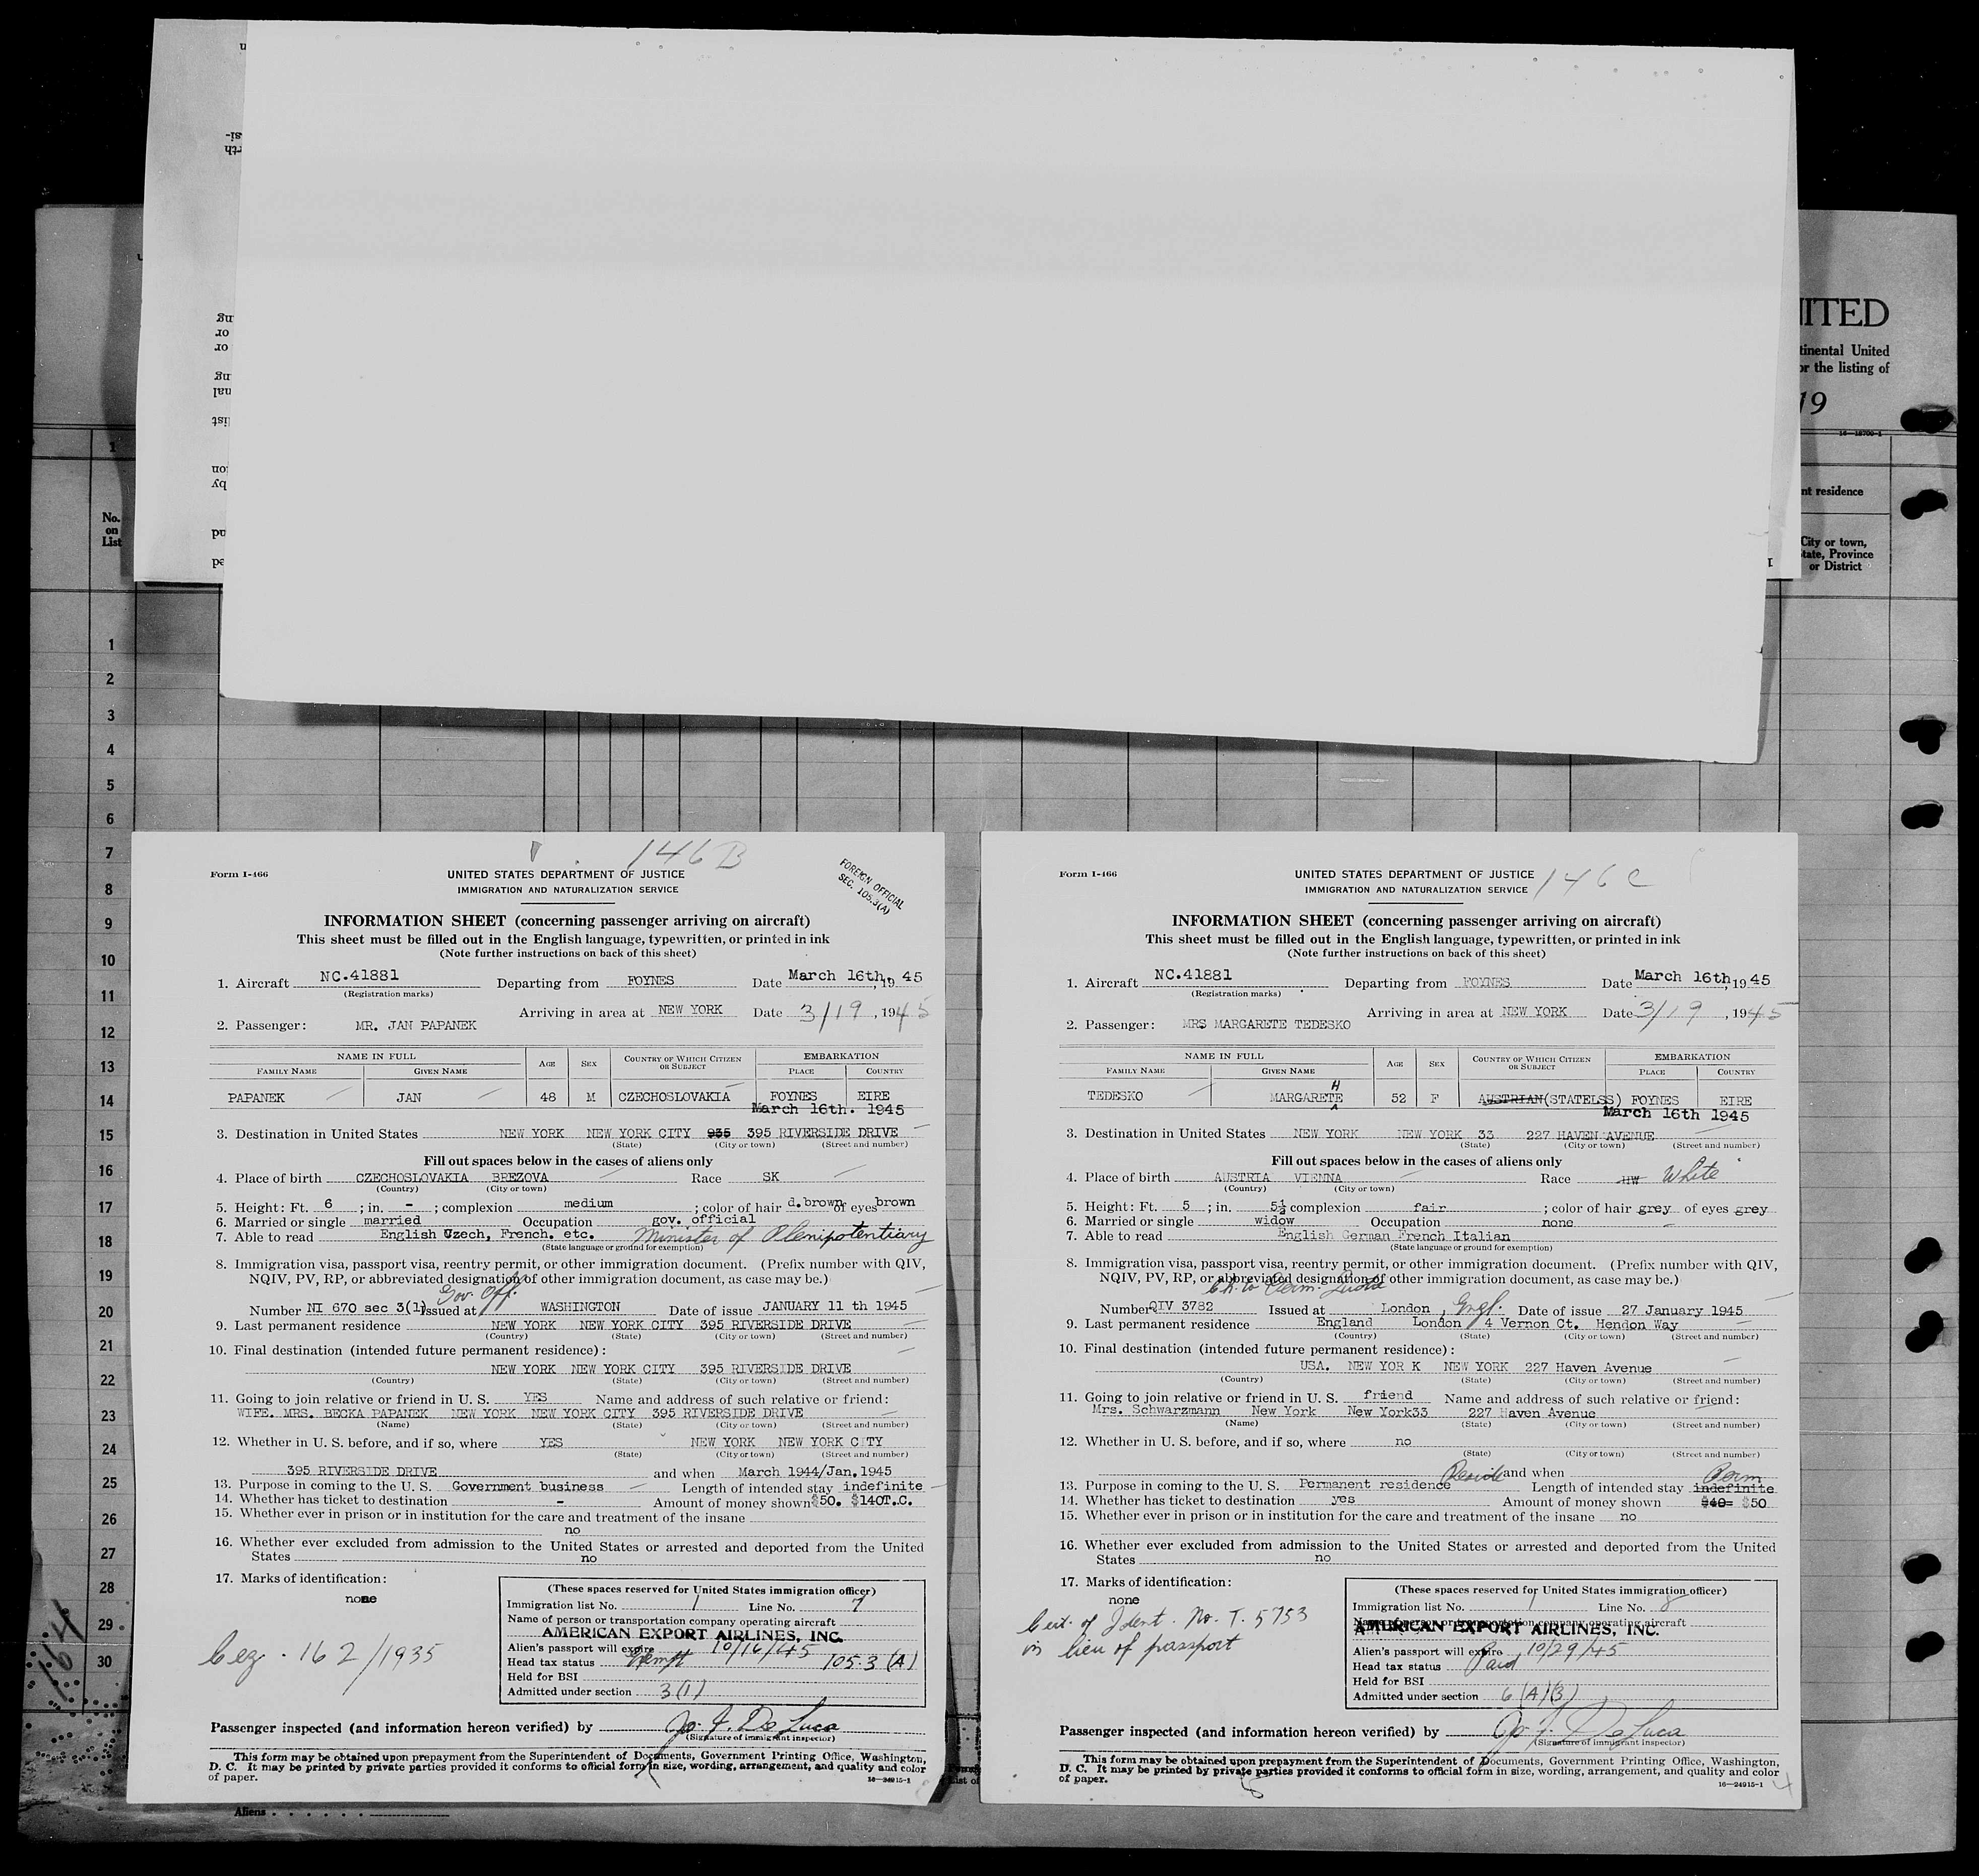 NITED
tinental United
or the listing of
19
16-18700-1
nt residence
City or town,
State, Province
or District
1
No.
on
List
1
2
3
4
5
6
7
8
9
10
11
12
13
14
15
16
17
18
19
20
21
22
23
24
25
26
27
28
29
30
164
146 B
Form I-466
UNITED STATES DEPARTMENT OF JUSTICE
IMMIGRATION AND NATURALIZATION SERVICE
FOREIGN OFFICIAL
SEC. 105.3(A)
INFORMATION SHEET (concerning passenger arriving on aircraft)
This sheet must be filled out in the English language, typewritten, or printed in ink
(Note further instructions on back of this sheet)
1. Aircraft NC.41881 Departing from FOYNES Date March 16th, 1945
(Registration marks)
Arriving in area at NEW YORK Date 3/19, 1945
2. Passenger: MR. JAN PAPANEK
NAME IN FULL AGE SEX COUNTRY OF WHICH CITIZEN OR SUBJECT EMBARKATION
FAMILY NAME GIVEN NAME PLACE COUNTRY
PAPANEK JAN 48 M CZECHOSLOVAKIA FOYNES EIRE
March 16th. 1945
3. Destination in United States NEW YORK NEW YORK CITY 935 395 RIVERSIDE DRIVE
(State) (City or town) (Street and number)
Fill out spaces below in the cases of aliens only
4. Place of birth CZECHOSLOVAKIA BREZOVA Race SK
(Country) (City or town)
5. Height: Ft. 6 ; in. - ; complexion medium ; color of hair d.brown of eyes brown
6. Married or single married Occupation gov. official
7. Able to read English Czech, French. etc. Minister of Plenipotentiary
(State language or ground for exemption)
8. Immigration visa, passport visa, reentry permit, or other immigration document. (Prefix number with QIV,
NQIV, PV, RP, or abbreviated designation of other immigration document, as case may be.)
Gov. Off.
Number NI 670 sec 3(1) Issued at WASHINGTON Date of issue JANUARY 11 th 1945
9. Last permanent residence NEW YORK NEW YORK CITY 395 RIVERSIDE DRIVE
(Country) (State) (City or town) (Street and number)
10. Final destination (intended future permanent residence):
NEW YORK NEW YORK CITY 395 RIVERSIDE DRIVE
(Country) (State) (City or town) (Street and number)
11. Going to join relative or friend in U. S. YES Name and address of such relative or friend:
WIFE. MRS. BECKA PAPANEK NEW YORK NEW YORK CITY 395 RIVERSIDE DRIVE
(Name) (State) (City or town) (Street and number)
12. Whether in U. S. before, and if so, where YES NEW YORK NEW YORK CITY
(State) (City or town) (Street and number)
395 RIVERSIDE DRIVE and when March 1944/Jan.1945
13. Purpose in coming to the U. S. Government business Length of intended stay indefinite
14. Whether has ticket to destination - Amount of money shown $50. $140T.C.
15. Whether ever in prison or in institution for the care and treatment of the insane
no
16. Whether ever excluded from admission to the United States or arrested and deported from the United
States no
17. Marks of identification:
none
Cez. 162/1935
(These spaces reserved for United States immigration officer)
Immigration list No. 1 Line No. 7
Name of person or transportation company operating aircraft
AMERICAN EXPORT AIRLINES, INC.
Alien's passport will expire 10/16/45
Head tax status Exempt 105.3 (A)
Held for BSI
Admitted under section 3(1)
Passenger inspected (and information hereon verified) by Jo. F. De Luca
(Signature of immigrant inspector)
This form may be obtained upon prepayment from the Superintendent of Documents, Government Printing Office, Washington,
D. C. It may be printed by private parties provided it conforms to official form in size, wording, arrangement, and quality and color
of paper.
16-24915-1
Aliens
146 C
Form I-466
UNITED STATES DEPARTMENT OF JUSTICE
IMMIGRATION AND NATURALIZATION SERVICE
INFORMATION SHEET (concerning passenger arriving on aircraft)
This sheet must be filled out in the English language, typewritten, or printed in ink
(Note further instructions on back of this sheet)
1. Aircraft NC.41881 Departing from FOYNES Date March 16th, 1945
(Registration marks)
Arriving in area at NEW YORK Date 3/19, 1945
2. Passenger: MRS MARGARETE TEDESKO
NAME IN FULL AGE SEX COUNTRY OF WHICH CITIZEN OR SUBJECT EMBARKATION
FAMILY NAME GIVEN NAME PLACE COUNTRY
H
TEDESKO MARGARETE 52 F AUSTRIAN(STATELSS) FOYNES EIRE
March 16th 1945
3. Destination in United States NEW YORK NEW YORK 33 227 HAVEN AVENUE
(State) (City or town) (Street and number)
Fill out spaces below in the cases of aliens only
4. Place of birth AUSTRIA VIENNA Race HW White
(Country) (City or town)
5. Height: Ft. 5 ; in. 5½ complexion fair ; color of hair grey of eyes grey
6. Married or single widow Occupation none
7. Able to read English German French Italian
(State language or ground for exemption)
8. Immigration visa, passport visa, reentry permit, or other immigration document. (Prefix number with QIV,
NQIV, PV, RP, or abbreviated designation of other immigration document, as case may be.)
Ch. to Perm. Quota
Number QIV 3782 Issued at London, Engl. Date of issue 27 January 1945
9. Last permanent residence England London 4 Vernon Ct. Hendon Way
(Country) (State) (City or town) (Street and number)
10. Final destination (intended future permanent residence):
USA. NEW YOR K NEW YORK 227 Haven Avenue
(Country) (State) (City or town) (Street and number)
11. Going to join relative or friend in U. S. friend Name and address of such relative or friend:
Mrs. Schwarzmann New York New York33 227 Haven Avenue
(Name) (State) (City or town) (Street and number)
12. Whether in U. S. before, and if so, where no
(State) (City or town) (Street and number)
and when
Reside Perm
13. Purpose in coming to the U. S. Permanent residence Length of intended stay indefinite
14. Whether has ticket to destination yes Amount of money shown $40= $50
15. Whether ever in prison or in institution for the care and treatment of the insane no
16. Whether ever excluded from admission to the United States or arrested and deported from the United
States no
17. Marks of identification:
none
Cert. of Ident. No. T. 5753
in lieu of passport
(These spaces reserved for United States immigration officer)
Immigration list No. 1 Line No. 8
Name of person or transportation company operating aircraft
AMERICAN EXPORT AIRLINES, INC.
Alien's passport will expire 10/29/45
Head tax status Paid
Held for BSI
Admitted under section 6 (A)(3)
Passenger inspected (and information hereon verified) by Jo. F. De Luca
(Signature of immigrant inspector)
This form may be obtained upon prepayment from the Superintendent of Documents, Government Printing Office, Washington,
D. C. It may be printed by private parties provided it conforms to official form in size, wording, arrangement, and quality and color
of paper.
16-24915-1